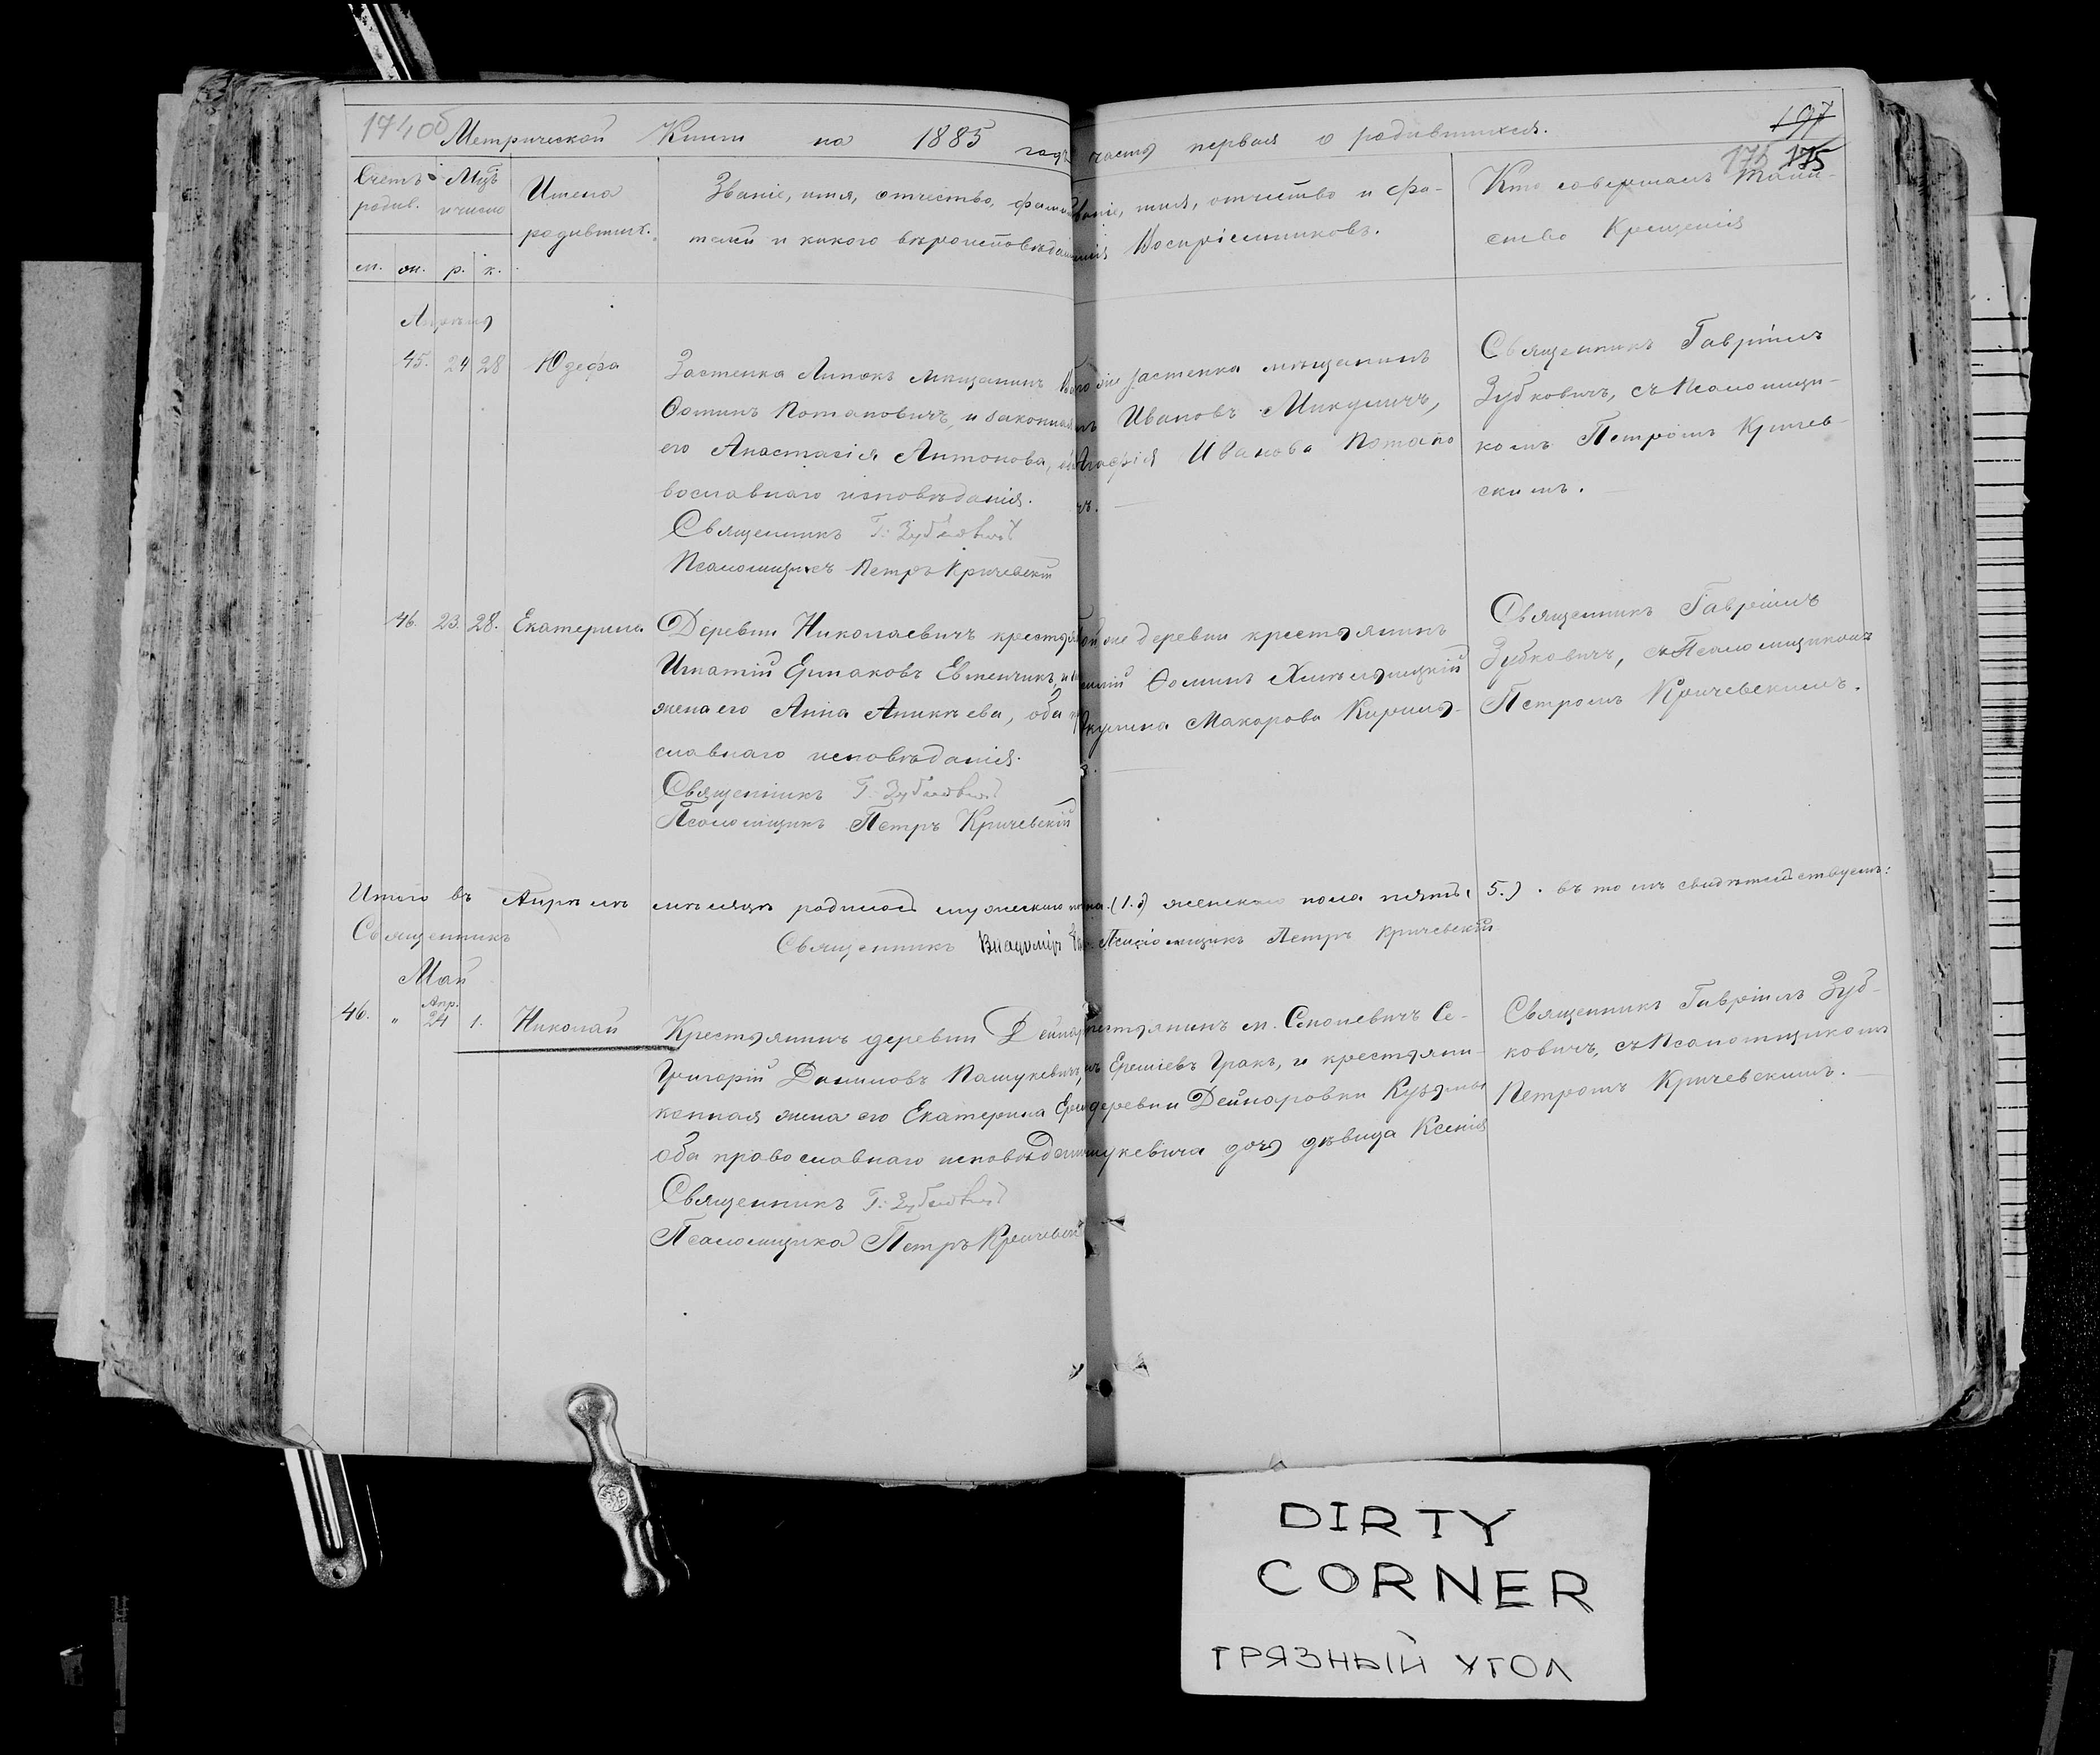 174об
Метрической Книги на 1885 годъ часть первая о родившихся.
197
175 175
Счетъ родив.
Мцъ и число
Имена родивших.
Званіе, имя, отчество, фами
телей и какого вѣроисповѣдан
Званіе, имя, отчество и фа-
милія Воспріемниковъ.
Кто совершалъ таин-
ство Крещенія
м. ж. р. к.
Апрѣль
45. 24 28 Юзефа
Застенка Липокъ мѣщанинъ
Фоминъ Потаповичъ, и законная
его Анастасія Антонова,
вославнаго исповѣданія.
Священникъ Г. Зубковичъ
Псаломщикъ Петръ Кричевскій
застенка мѣщанинъ
Ивановъ Микуличъ,
Агафія Иванова Потапо
чъ.
Священникъ Гавріилъ
Зубковичъ, съ Псаломщи-
комъ Петромъ Кричев-
скимъ.
46. 23. 28. Екатерина
Деревни Николаевичъ крестья
Игнатій Ермаковъ Евтенчикъ, и
жена его Анна Аникѣева, оба
славнаго исповѣданія.
Священникъ Г. Зубковичъ
Псаломщикъ Петръ Кричевскій
же деревни крестьянинъ
Фоминъ Хмѣльницкій
Акулина Макарова Кирила-
Священникъ Гавріилъ
Зубковичъ, съ Псаломщикомъ
Петромъ Кричевскимъ.
Итого въ Апрѣлѣ мѣсяцѣ родилось мужескаго (1.) женскаго пола пять (5.). въ томъ свидѣтельствуемъ:
Священникъ
Священникъ Владиміръ Псаломщикъ Петръ Кричевскій
Май
46. " Апр. 24 1. Николай
Крестьянинъ деревни Дейнар
Григорій Даниловъ Пашукевичъ,
конная жена его Екатерина
оба православнаго исповѣдан
Священникъ Г. Зубковичъ
Псаломщикъ Петръ Кричевскій
Крестьянинъ м. Семоневичъ Се-
Еремѣевъ Гракъ, и крестьяни-
деревни Дейнаровки Кузьмы
Пашукевича дочь дѣвица Ксенія
Священникъ Гавріилъ Зуб-
ковичъ, съ Псаломщикомъ
Петромъ Кричевскимъ.
DIRTY
CORNER
ГРЯЗНЫЙ УГОЛ